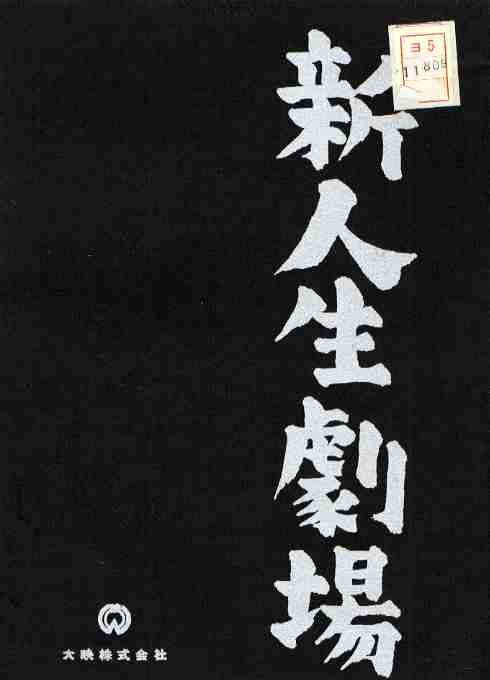 新人生劇場
ヨ5
11809
大映株式会社